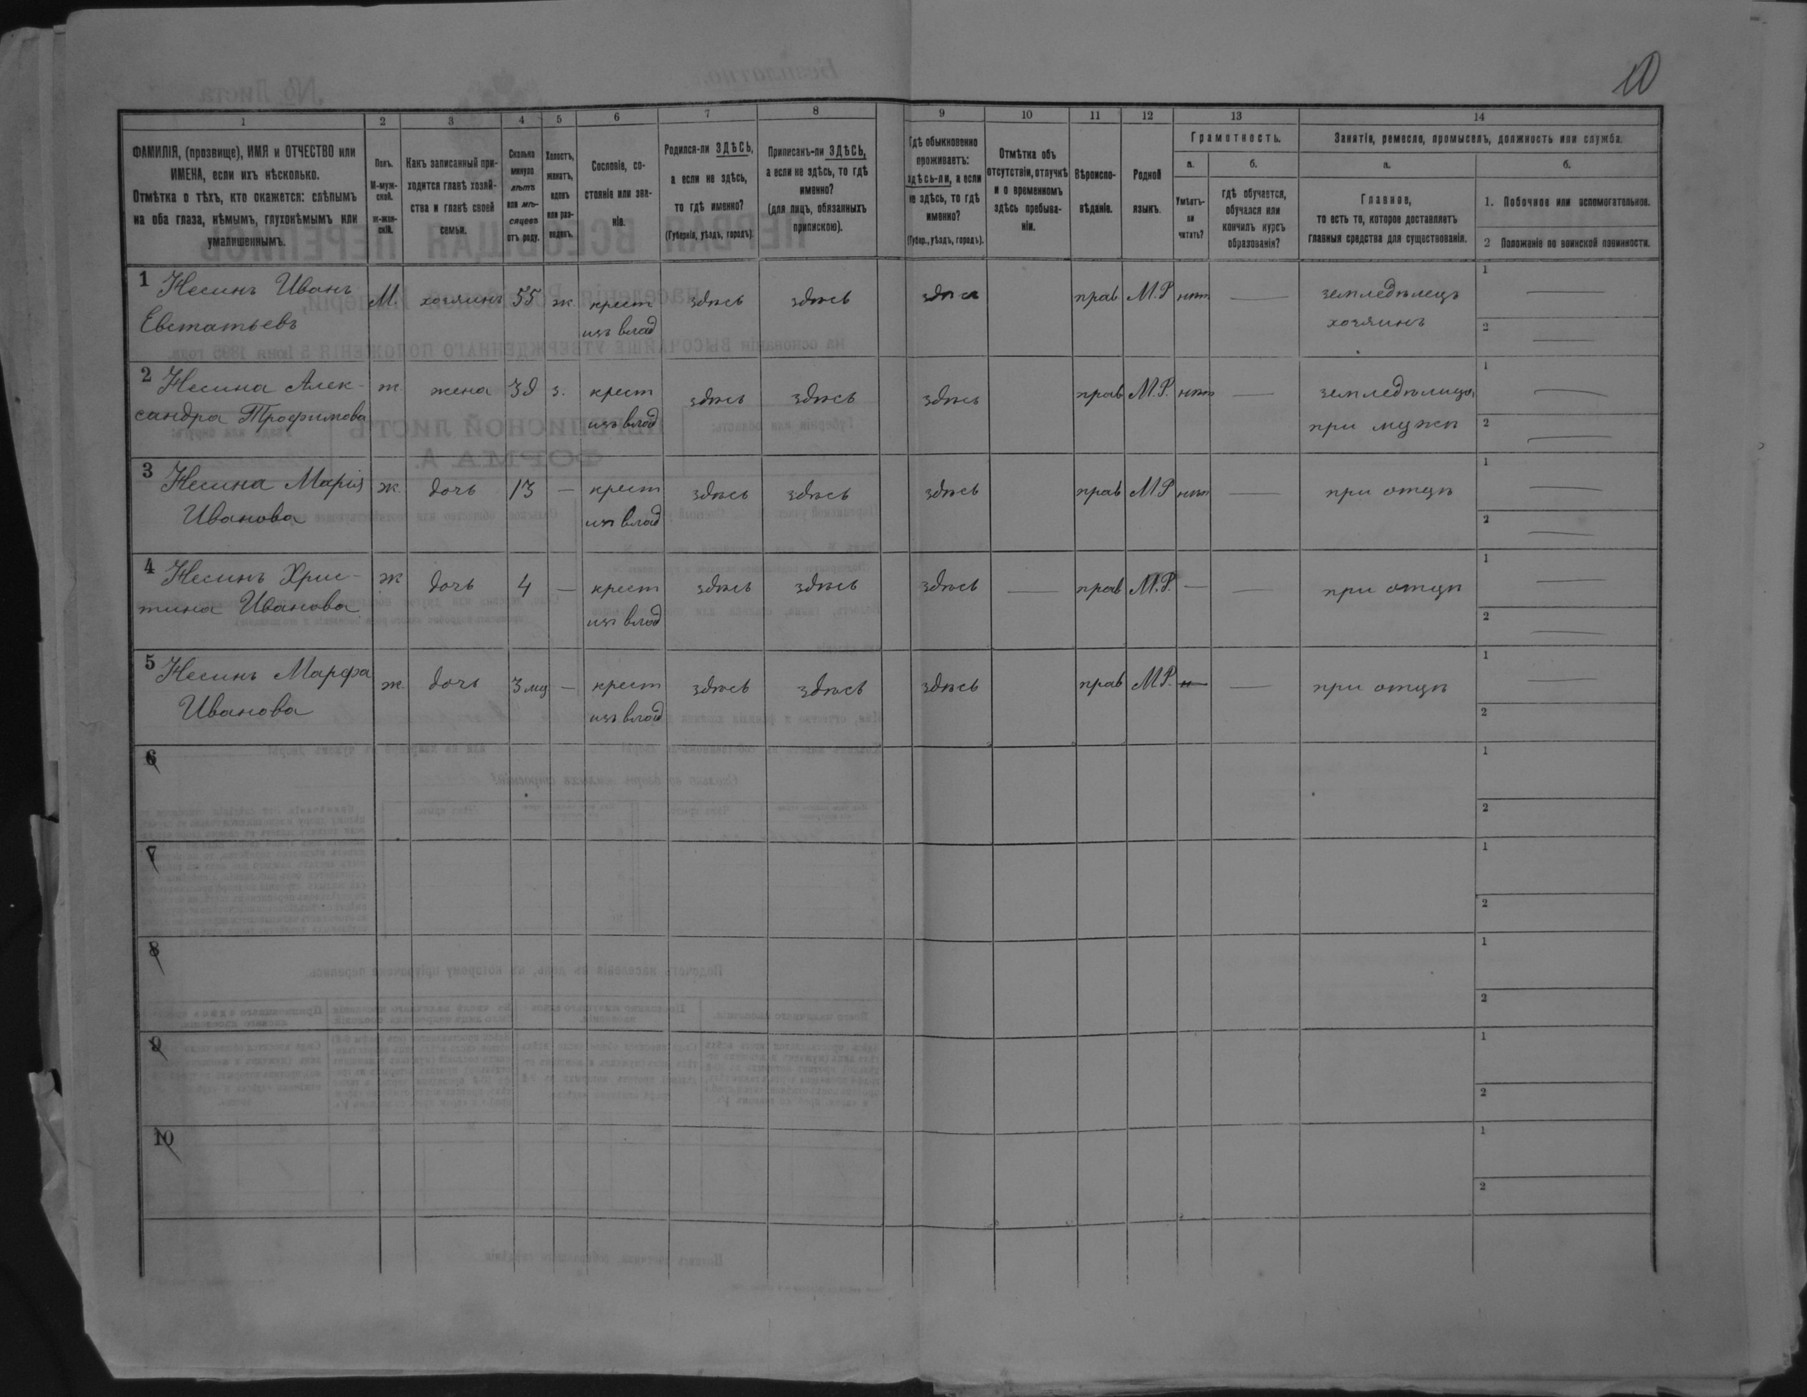 10
1 2 3 4 5 6 7 8 9 10 11 12 13 14
ФАМИЛІЯ, (прозвище), ИМЯ и ОТЧЕСТВО или
ИМЕНА, если ихъ нѣсколько.
Отмѣтка о тѣхъ, кто окажется: слѣпымъ
на оба глаза, нѣмымъ, глухонѣмымъ или
умалишеннымъ.
Полъ.
М-муж-
ской.
ж-жен-
скій.
Какъ записанный при-
ходится главѣ хозяй-
ства и главѣ своей
семьи.
Сколько
минуло
лѣтъ
или мѣ-
сяцевъ
отъ роду.
Холостъ,
женатъ,
вдовъ
или раз-
веденъ.
Сословіе, со-
стояніе или зва-
ніе.
Родился-ли ЗДѢСЬ,
а если не здѣсь,
то гдѣ именно?
(Губернія, уѣздъ, городъ).
Приписанъ-ли ЗДѢСЬ,
а если не здѣсь, то гдѣ
именно?
(для лицъ, обязанныхъ
припискою).
Гдѣ обыкновенно
проживаетъ:
здѣсь-ли, а если
не здѣсь, то гдѣ
именно?
(Губер., уѣздъ, городъ).
Отмѣтка объ
отсутствіи, отлучкѣ
и о временномъ
здѣсь пребыва-
ніи.
Вѣроиспо-
вѣданіе.
Родной
языкъ.
Грамотность.
а.
Умѣетъ-
ли
читать?
б.
гдѣ обучается,
обучался или
кончилъ курсъ
образованія?
Занятія, ремесло, промыселъ, должность или служба.
а.
Главное,
то есть то, которое доставляетъ
главныя средства для существованія.
б.
1. Побочное или вспомогательное.
2 Положеніе по воинской повинности.
1 Несинъ Иванъ М. хозяинъ 55 ж крест здѣсь здѣсь здѣсь прав М.Р нѣт — земледѣлецъ 1 —
Евстатьевъ изъ влад хозяинъ 2 —
2 Несина Алек- ж жена з. крест здѣсь здѣсь здѣсь прав М.Р. нѣт — 1 —
сандра Трофимова изъ влад при мужѣ 2 —
3 Несина Марія ж дочь 13 — крест здѣсь здѣсь здѣсь прав М.Р нѣт — при отцѣ 1 —
Иванова изъ влад 2 —
4 Несинъ Хрис- ж дочь 4 — крест здѣсь здѣсь здѣсь — прав М.Р. — — при отцѣ 1 —
тина Иванова изъ влад 2 —
5 Несинъ Марфа ж дочь 3 мц — крест здѣсь здѣсь здѣсь прав М.Р. — — при отцѣ 1 —
Иванова изъ влад 2
6 1
2
7 1
2
8 1
2
9 1
2
10 1
2